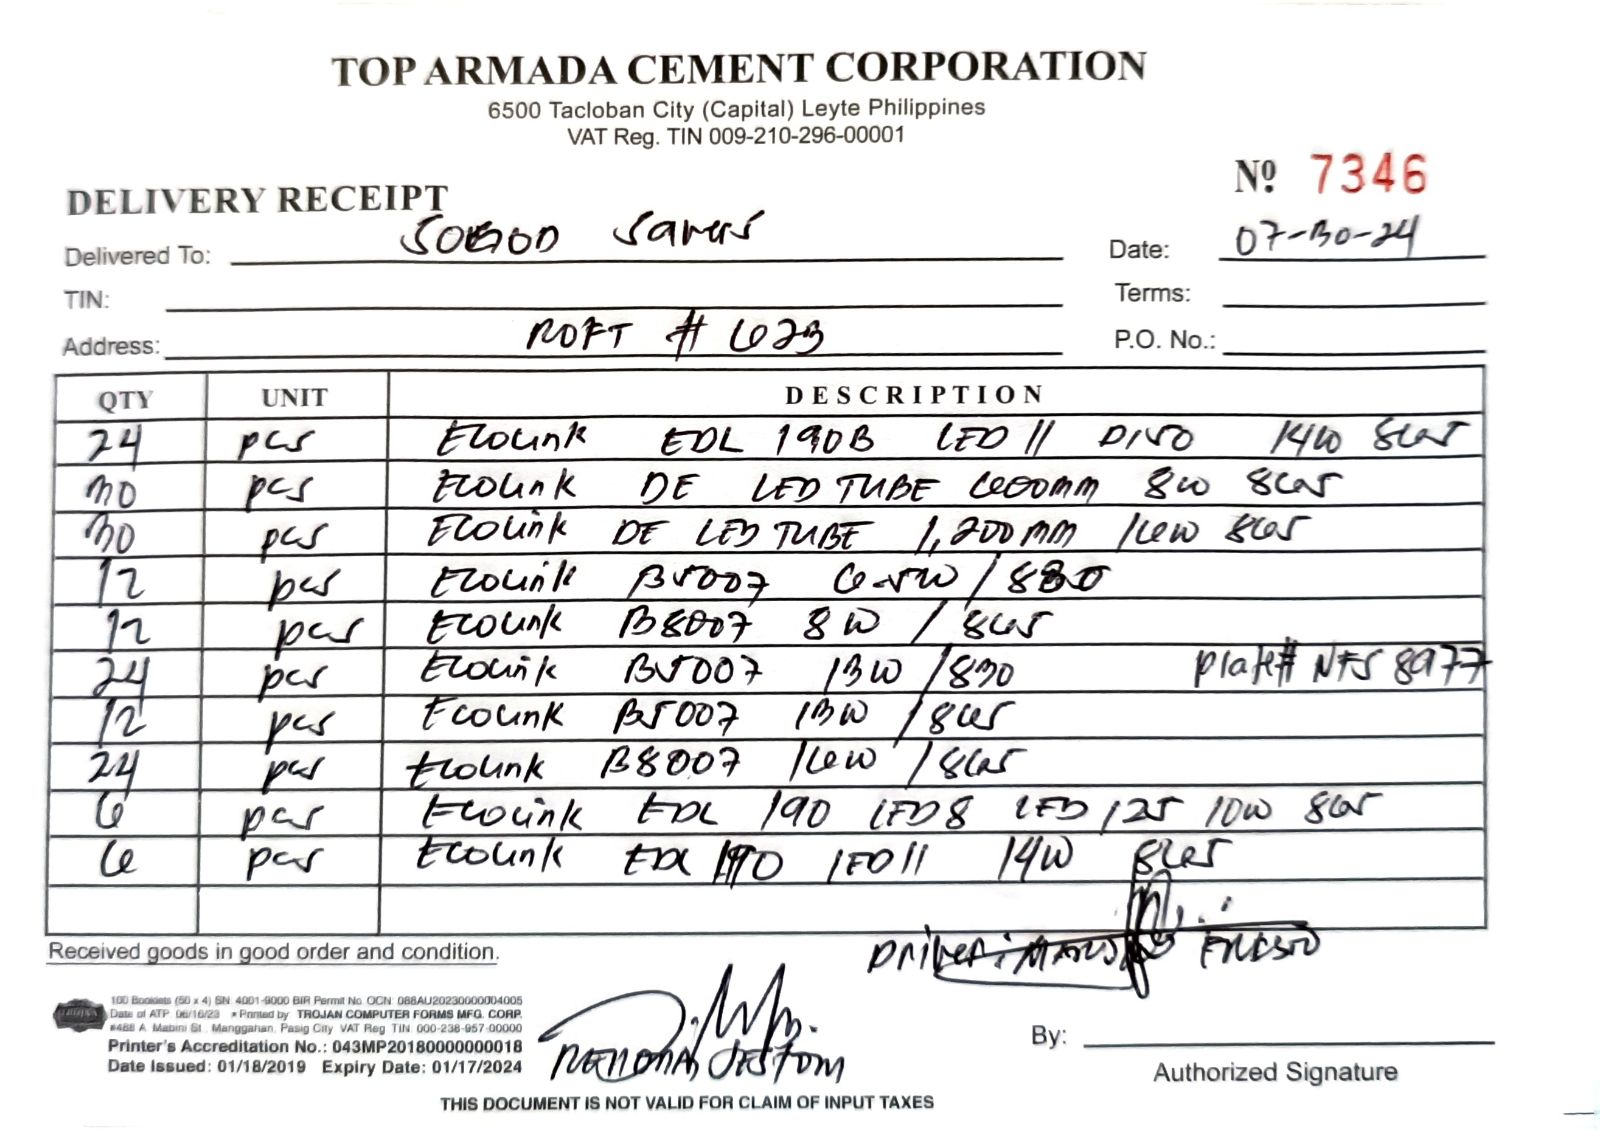 TOP ARMADA CEMENT CORPORATION
6500 Tacloban City (Capital) Leyte Philippines
VAT Reg. TIN 009-210-296-00001
Nº 7346
DELIVERY RECEIPT
Delivered To: SOGOD Savers
Date: 07-30-24
TIN:
Terms:
Address: ROFT # 623
P.O. No.:
QTY UNIT DESCRIPTION
24 pcs Ecolink EDL 190B LED 11 D150 14W 865
30 pcs Ecolink DE LED TUBE 600mm 8W 865
30 pcs Ecolink DE LED TUBE 1,200mm 16W 865
12 pcs Ecolink B5007 6.5W / 830
12 pcs Ecolink B8007 8W / 865
24 pcs Ecolink B5007 13W / 830 Plate# NFS 8977
12 pcs Ecolink B5007 13W / 865
24 pcs Ecolink B8007 16W / 865
6 pcs Ecolink EDL 190 LED8 LED 125 10W 865
6 pcs Ecolink EDL 190 LED11 14W 865
Driver:
Received goods in good order and condition.
100 Booklets (50 x 4) SN: 4001-9000 BIR Permit No. OCN: 088AU20230000004005
Date of ATP: 06/16/23 • Printed by: TROJAN COMPUTER FORMS MFG. CORP.
#488 A. Mabini St., Manggahan, Pasig City VAT Reg. TIN: 000-238-957-00000
Printer's Accreditation No.: 043MP20180000000018
Date Issued: 01/18/2019 Expiry Date: 01/17/2024
By:
Authorized Signature
THIS DOCUMENT IS NOT VALID FOR CLAIM OF INPUT TAXES